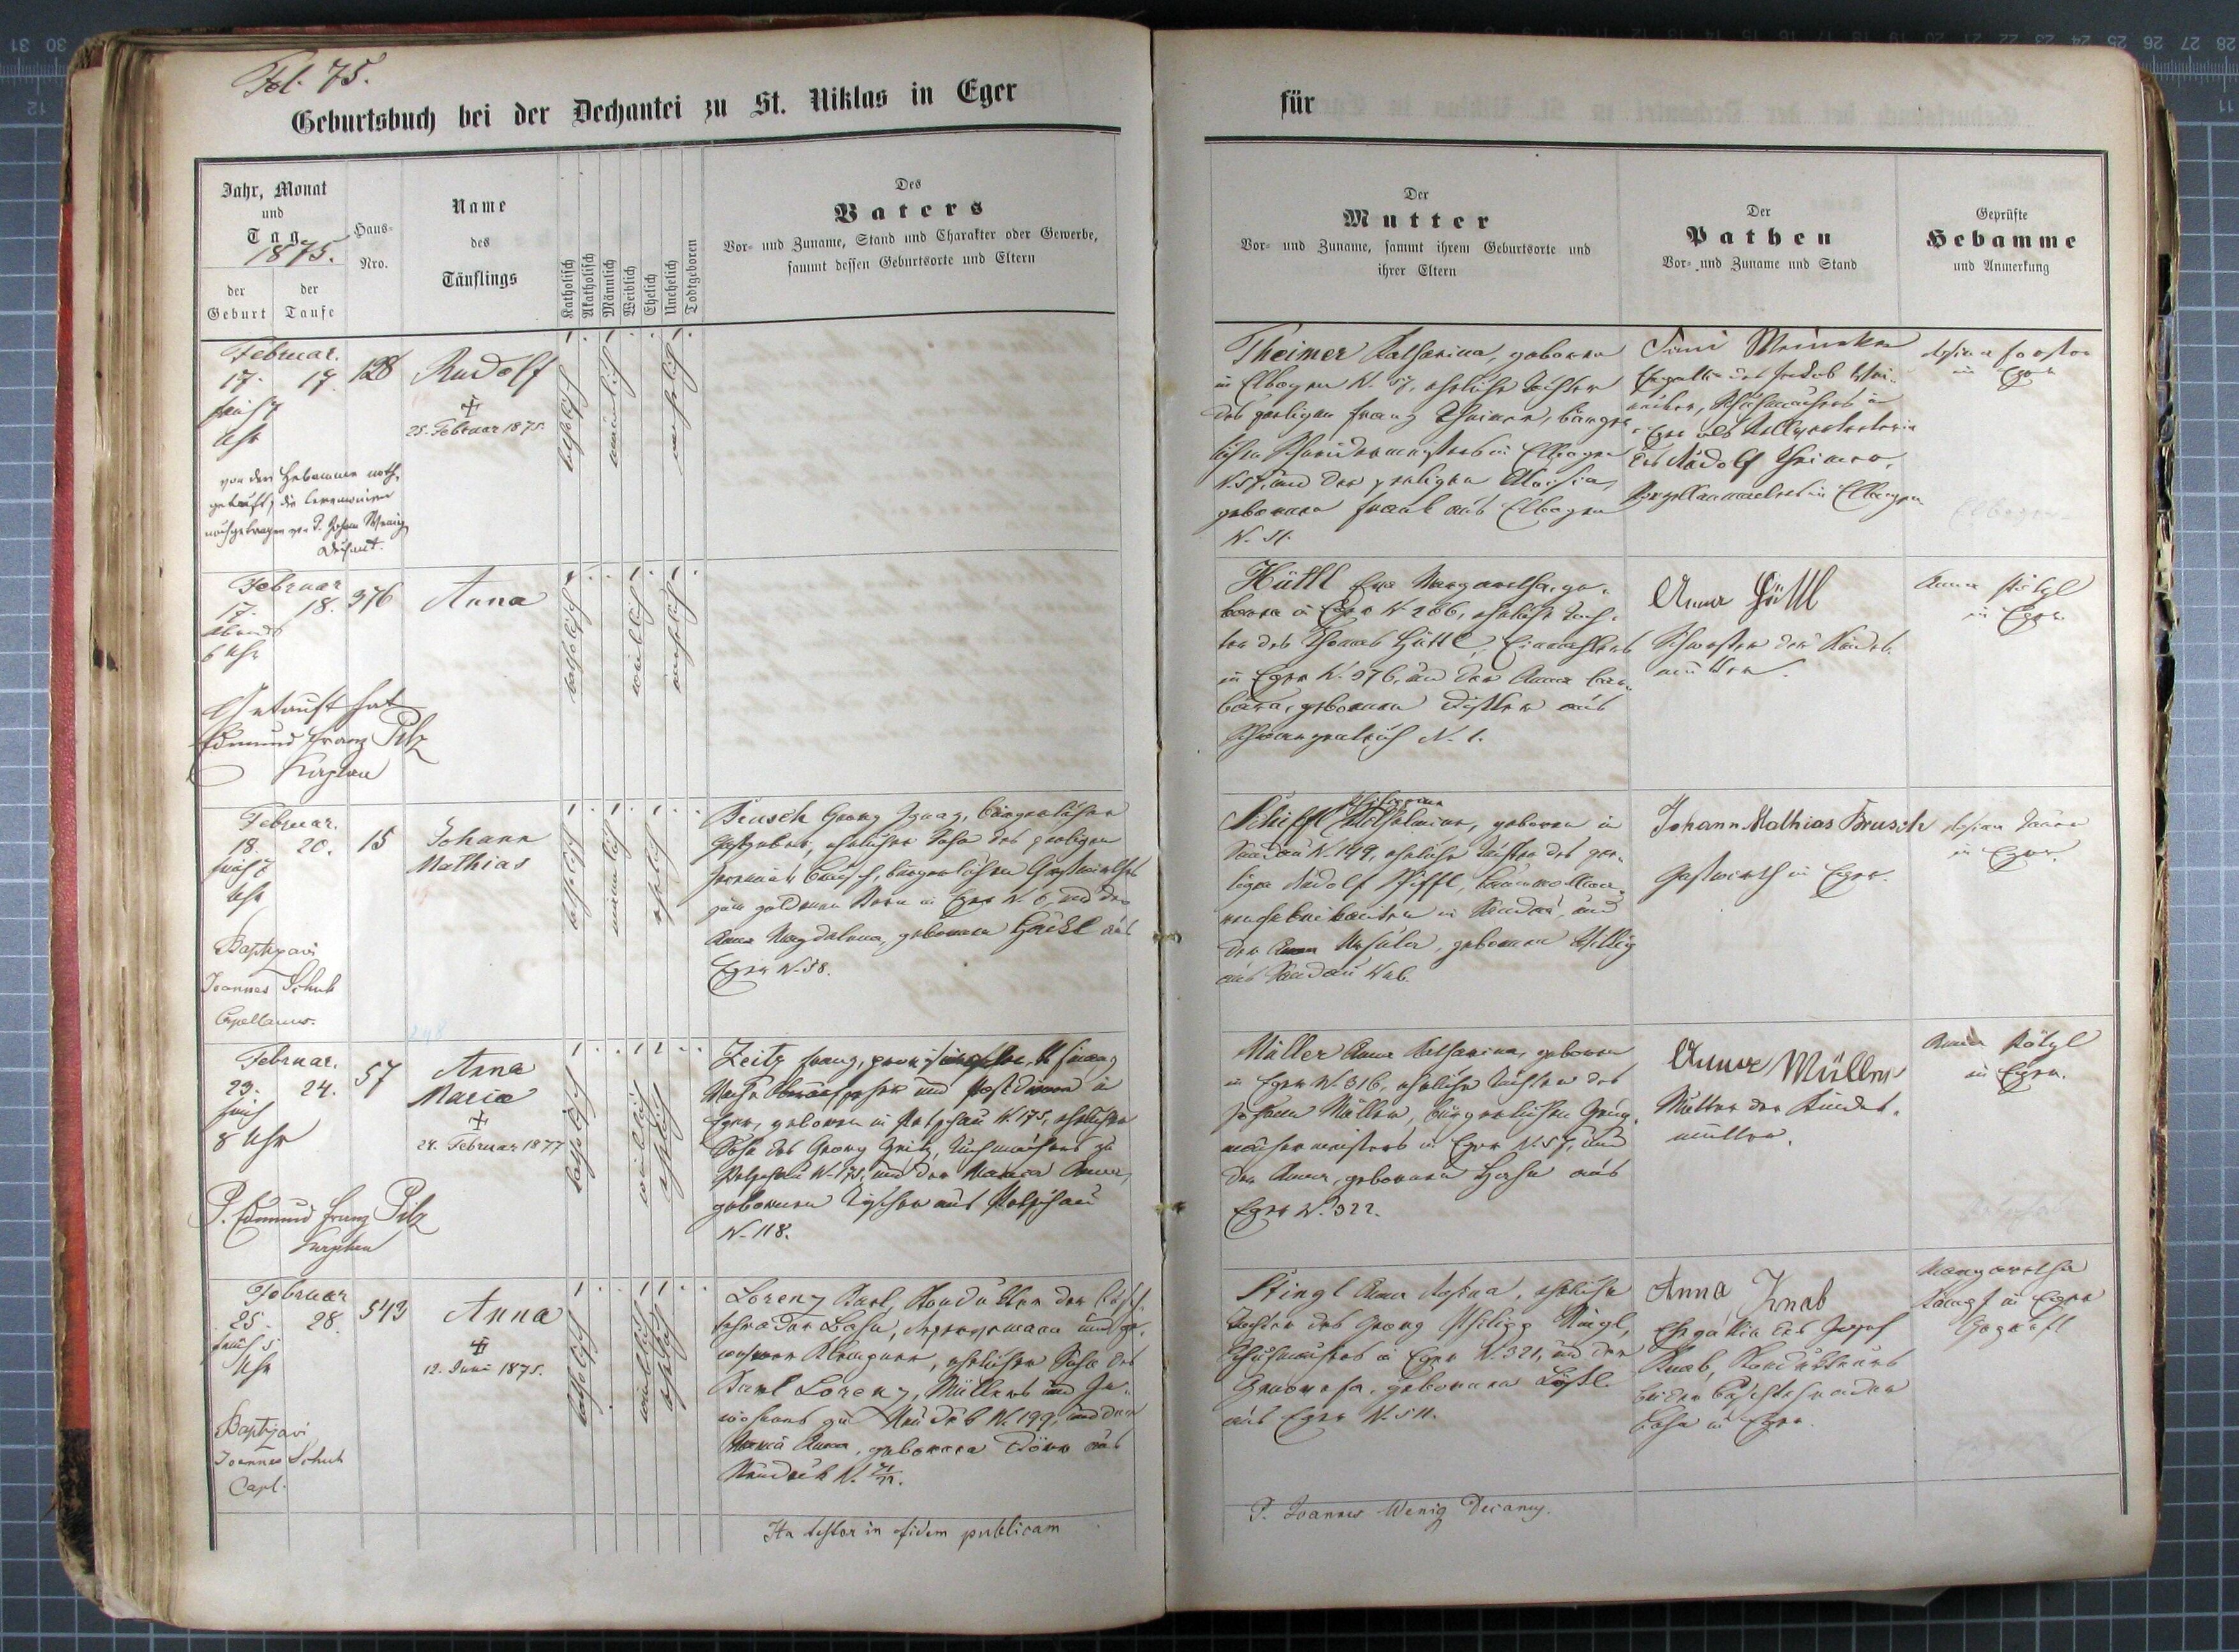 Fol. 75.
Geburtsbuch bei der Dechantei zu St. Niklas in Eger
für
Jahr, Monat
und
Tag
1875.
der Geburt
der Taufe
Haus-
Nro.
Name
des
Täuflings
Katholisch
Akatholisch
Männlich
Weiblich
Ehelich
Unehelich
Todtgeboren
Des
Vaters
Vor- und Zuname, Stand und Charakter oder Gewerbe,
sammt dessen Geburtsorte und Eltern
Der
Mutter
Vor- und Zuname, sammt ihrem Geburtsorte und
ihrer Eltern
Der
Pathen
Vor- und Zuname und Stand
Geprüfte
Hebamme
und Anmerkung
Februar.
17. 17.
früh 7
Uhr
von der Hebamme noth-
getauft, die Ceremonien
nachgetragen von P. Johann Wenig
Dechant.
128
Rudolf
25. Februar 1875.
katholisch
männlich
unehelich
Theimer Katharina, geboren
in Elbogen N. 57, eheliche Tochter
des seligen Franz Theimer, bürger-
lichen Schneidermeisters in Elbogen
N. 57, und der seligen Aloisia,
geborenen Frank aus Elbogen
N. 51.
des Rudolf Theimer,
in Elbogen
in Eger
Februar
17. 18.
Abends
6 Uhr
Getauft hat
Edmund Franz Pilz
Kaplan
376
Anna
katholisch
weiblich
unehelich
Hüttl Eva Margaretha, ge-
boren in Eger N. 266, eheliche Toch-
ter des Thomas Hüttl,
in Eger N. 376, und der Anna Bar-
bara, geborenen aus
N. 1.
Anna Hüttl
Schwester der Kindes-
mutter.
Anna Pötzl
in Eger.
Februar.
18. 20.
früh 7
Uhr
Baptizavi
Joannes Schuh
Capellanus.
15
Johann
Mathias
katholisch
männlich
ehelich
Brusch Georg Ignaz, bürgerlicher
Gastgeber, ehelicher Sohn des seligen
Brusch, bürgerlichen Gastwirthes
zum goldenen Stern in Eger N. 6, und der
Anna Magdalena, geborenen Häckl aus
Eger N. 58.
geboren in
Sandau N. 149, eheliche Tochter des se-
ligen Rudolf Schiffl,
in Sandau, und
der Ursula, geborenen
aus Sandau
Johann Mathias Brusch
Gastwirth in Eger.
in Eger.
Februar.
23. 24.
früh
8 Uhr
P. Edmund Franz Pilz
Kaplan
57
Anna
Maria
24. Februar 1877
katholisch
weiblich
ehelich
Zeitz Franz,
und Postdiener in
Eger, geboren in N. 175, ehelicher
Sohn des Georg Zeitz, Tuchmachers zu
N. 175, und der Maria Anna,
geborenen Fischer aus
N. 118.
Müller Anna Katharina, geboren
in Eger N. 316, eheliche Tochter des
Johann Müller, bürgerlichen Zeug-
machermeisters in Eger N. 57, und
der Anna, geborenen aus
Eger N. 322.
Anna Müller
Mutter der Kindes-
mutter.
Anna Pötzl
in Eger.
Februar
25. 28.
früh 5
Uhr
Baptizavi
Joannes Schuh
Capl.
543
Anna
12. Juni 1875.
katholisch
weiblich
ehelich
Lorenz Karl, Kondukteur der Busch-
tehrader Bahn, und ge-
wesener Klempner, ehelicher Sohn des
Karl Lorenz, Müllers und In-
wohners zu Neudek N. 199, und der
Maria Anna, geborenen Dörr aus
Neudek N.
Stingl Anna, eheliche
Tochter des Georg Philipp Stingl,
Schuhmachers in Eger N. 321, und der
Genovefa, geborenen
aus Eger N. 511.
Anna Knab
Ehegattin des Josef
Knab, Kondukteurs
bei der Buschtehrader
Bahn in Eger.
Margaretha
in Eger
Geprüft
Ita testor in fidem publicam
P. Joannes Wenig Decanus.